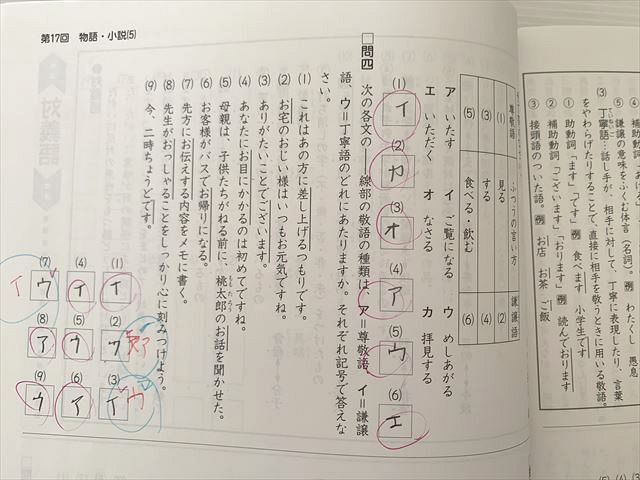 第17回 物語・小説(5)
④ 補助動詞
⑤ 謙譲の意味をふくむ体言(名詞)。例 わたくし 愚息
(3) 丁寧語…話し手が、相手に対して、丁寧に表現したり、言葉
をやわらげたりすることで、直接に相手を敬うときに用いる敬語。
① 助動詞「ます」「です」。例 食べます 小学生です
② 補助動詞「ございます」「おります」例 読んでおります
③ 接頭語のついた語。例 お店 お茶 ご飯
尊敬語 ふつうの言い方 謙譲語
(1) 見る (2)
(3) する (4)
(5) 食べる・飲む (6)
ア いたす イ ご覧になる ウ めしあがる
エ いただく オ なさる カ 拝見する
(1) イ (2) カ (3) オ (4) ア (5) ウ (6) エ
□問四 次の各文の――線部の敬語の種類は、ア=尊敬語、イ=謙譲
語、ウ=丁寧語のどれにあたりますか。それぞれ記号で答えな
さい。
(1) これはあの方に差し上げるつもりです。
(2) お宅のおじい様はいつもお元気ですね。
(3) ありがたいことでございます。
(4) あなたにお目にかかるのは初めてですね。
(5) 母親は、子供たちがねる前に、桃太郎のお話を聞かせた。
ももたろう
(6) お客様がバスでお帰りになる。
(7) 先方にお伝えする内容をメモに書く。
(8) 先生がおっしゃることをしっかり心に刻みつけよう。
(9) 今、二時ちょうどです。
(1) イ (2) ウ ア (3) イ ウ
(4) イ (5) ウ (6) ア
(7) ウ イ (8) ア (9) ウ